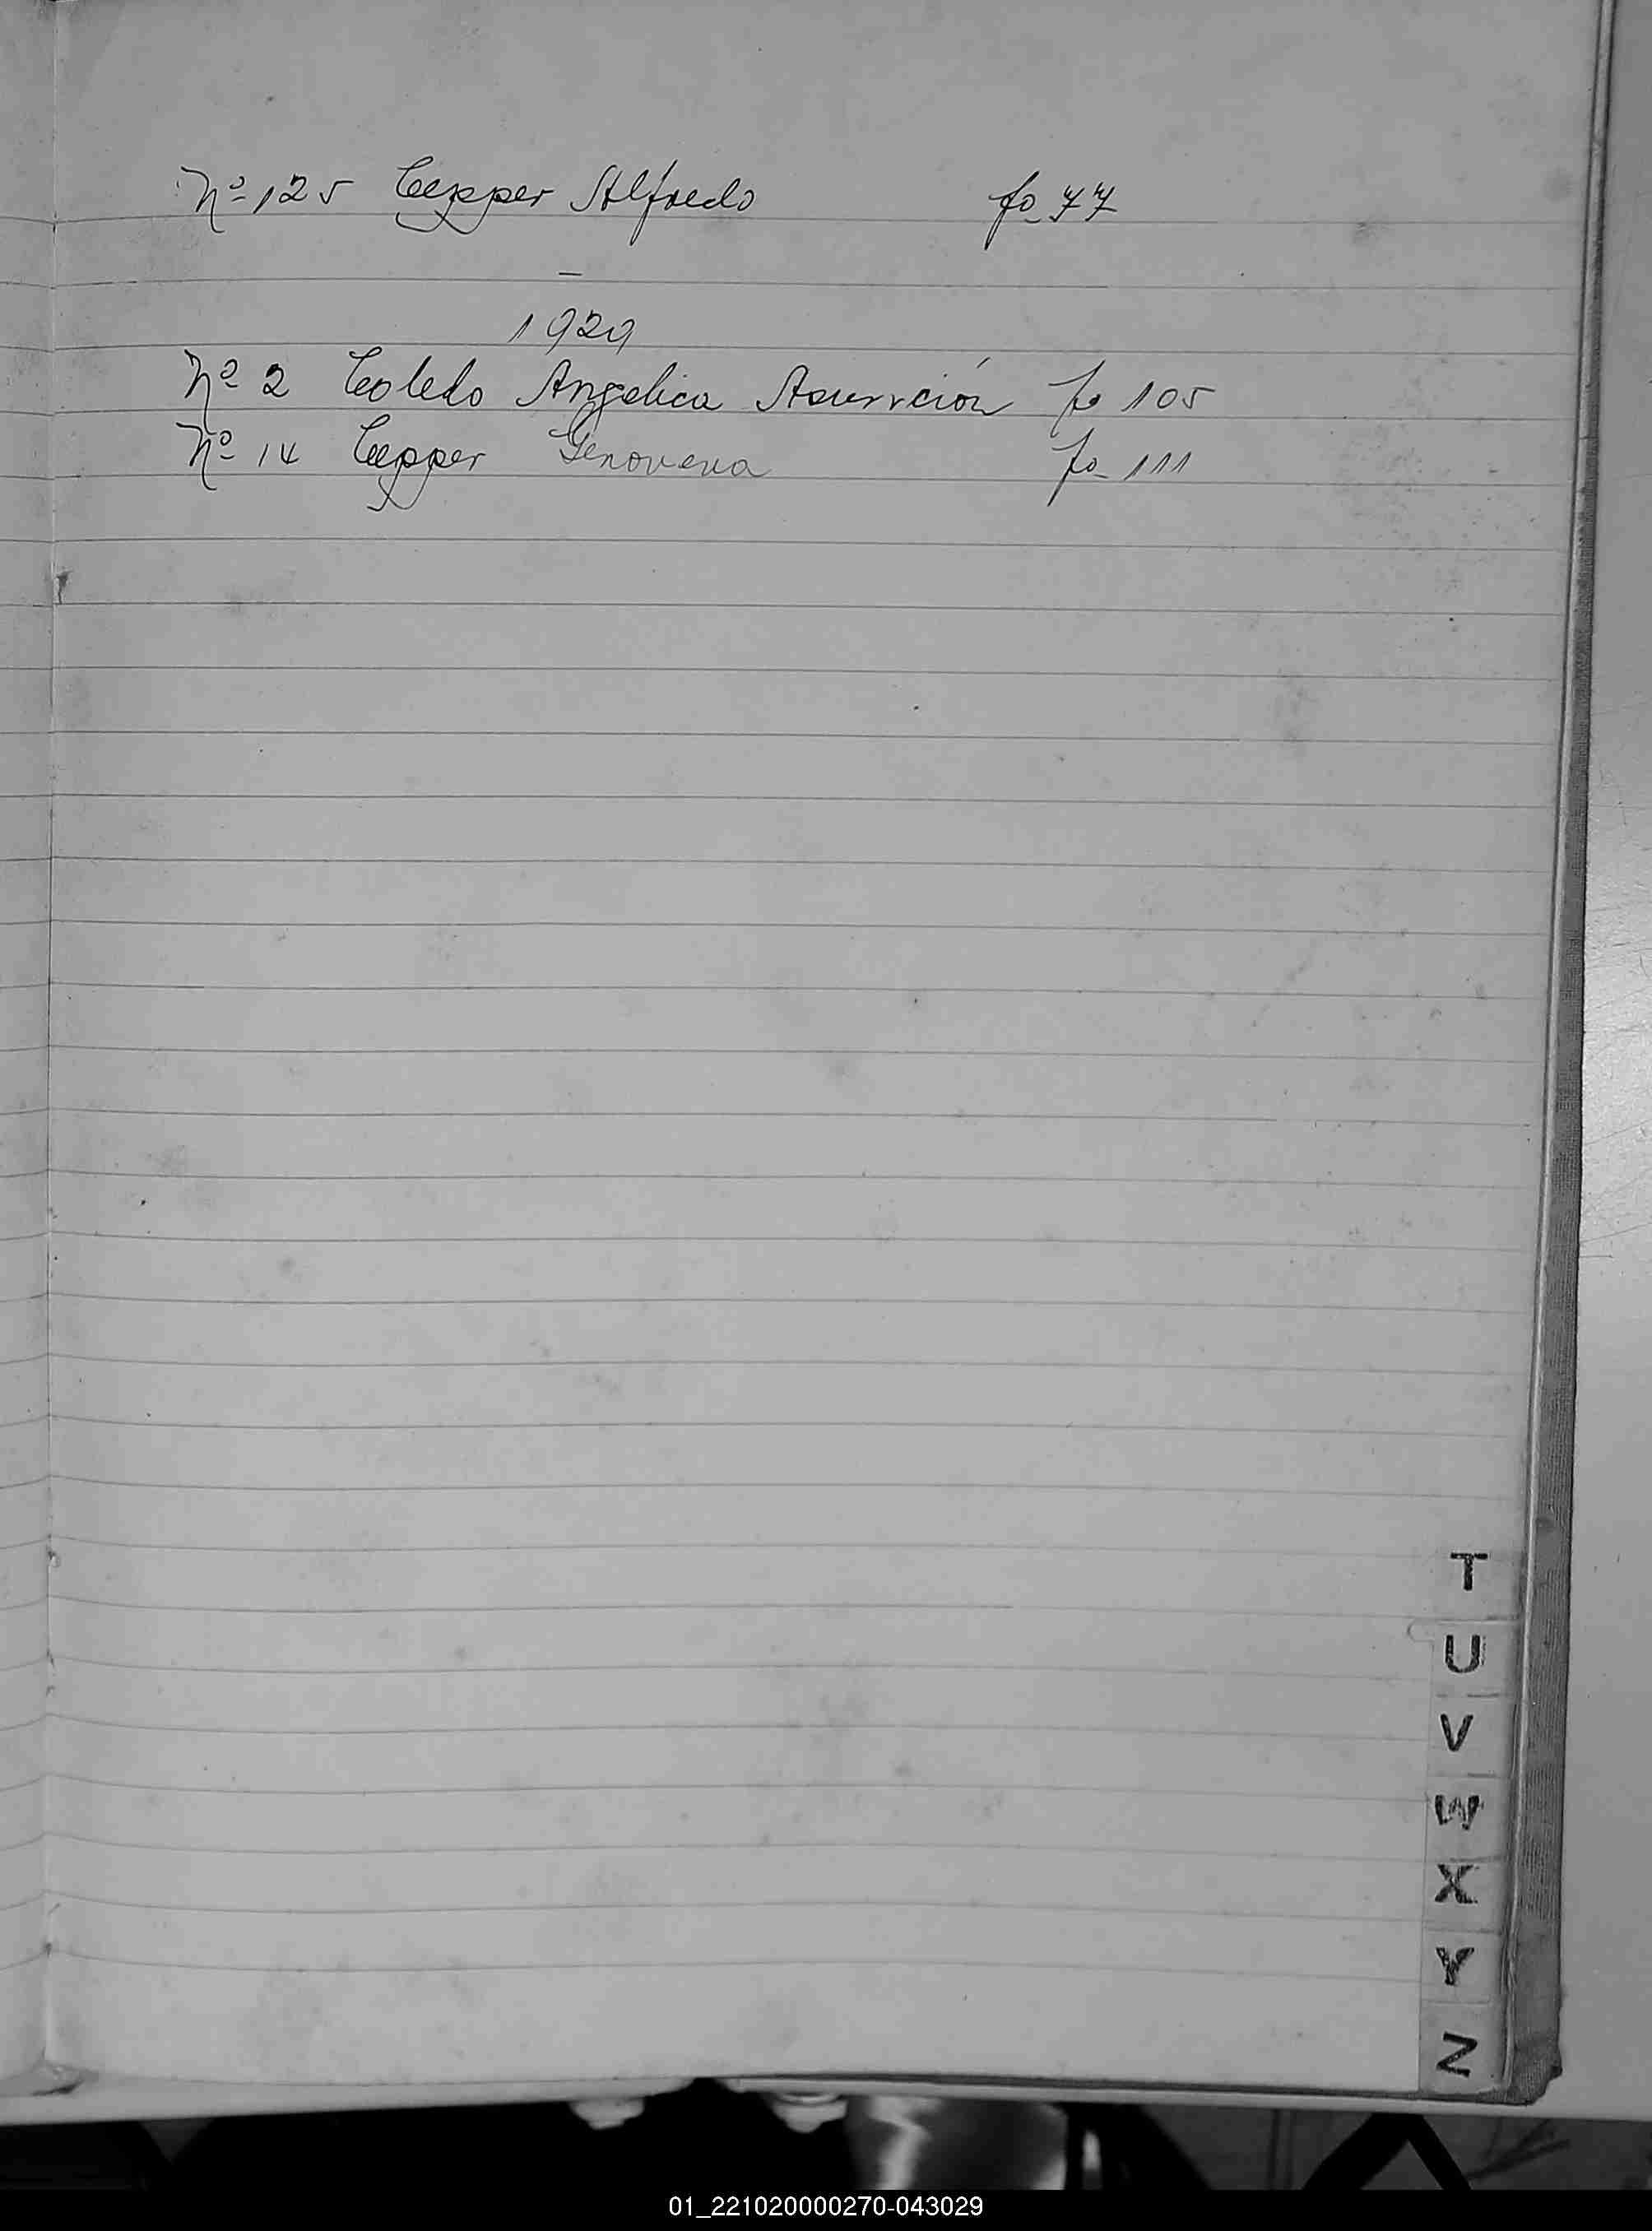 Nº 125 Tepper Alfredo fo 77
1929
Nº 2 Toledo Angelica Asunción fo 105
Nº 14 Tepper Genoveva fo 111
T
U
V
W
X
Y
Z
01_221020000270-043029